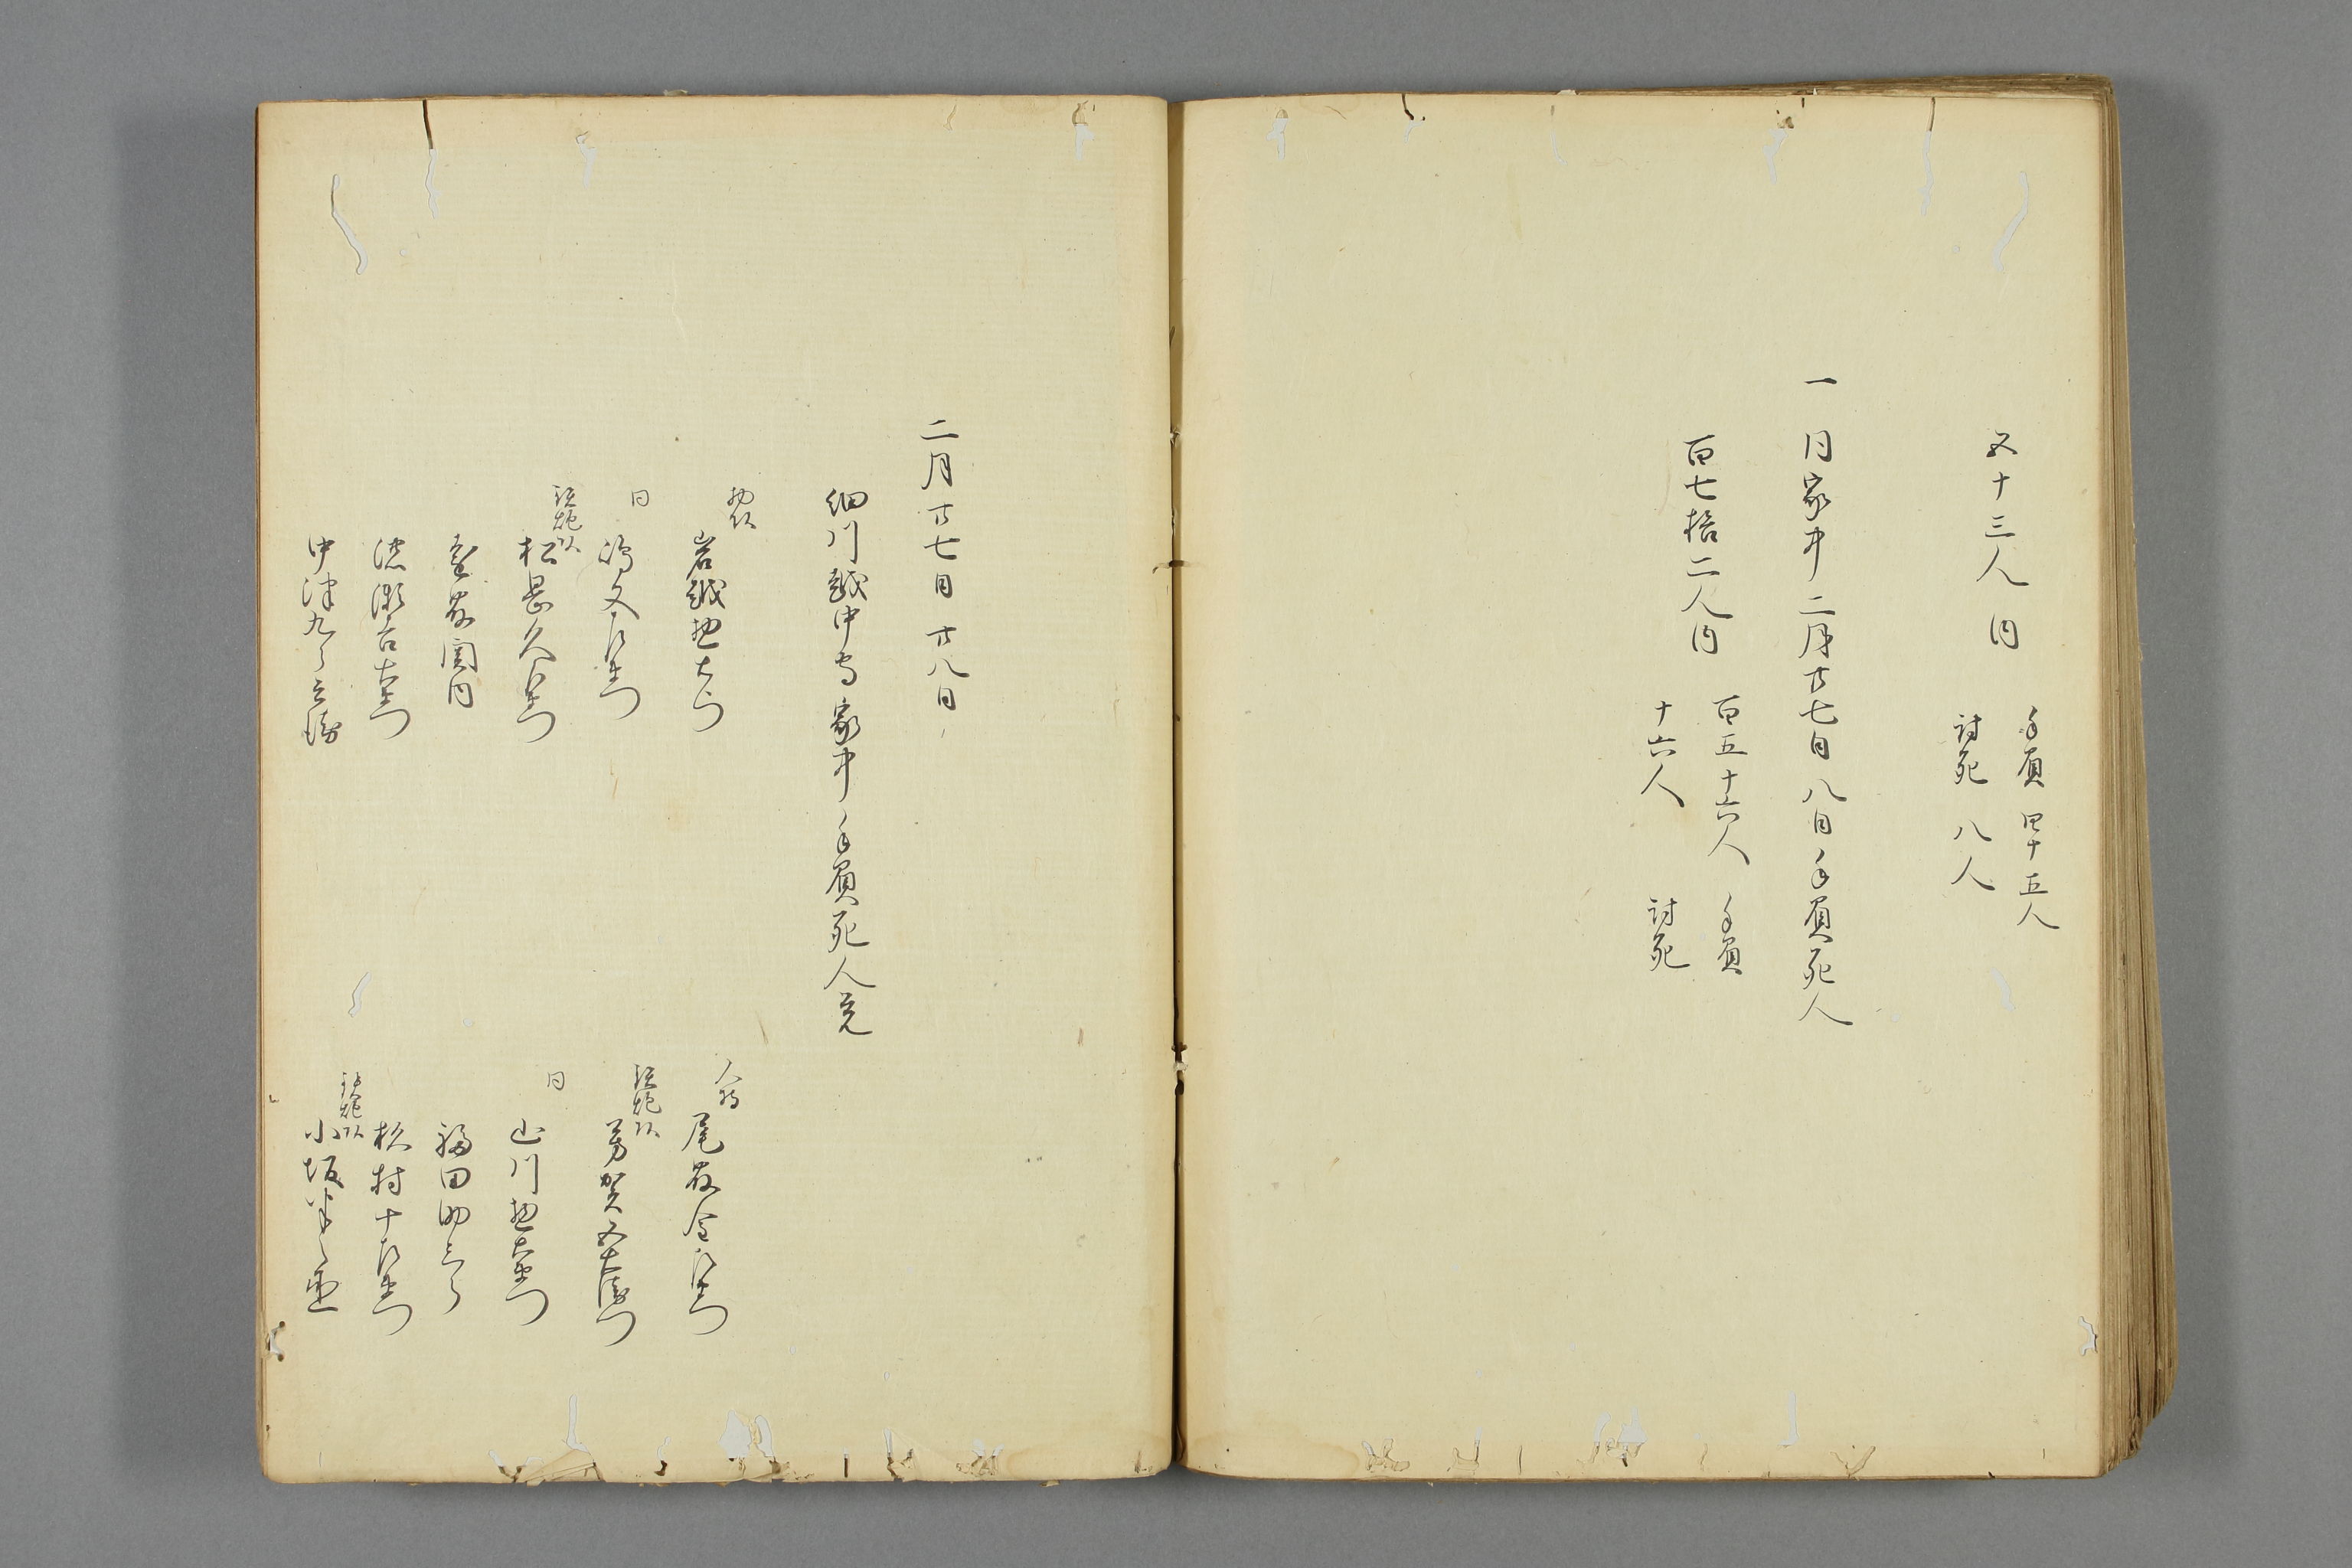 五十三人内
手負 四十五人
討死 八人
一 同家中二月廿七日八日手負死人
百七拾二人内
百五十六人 手負
十六人 討死
二月廿七日廿八日
細川越中守家中手負死人覚
物頭
岩越惣右衛門
同
鉄炮頭
松星久左衛門
中津九郎兵衛
人持
尾藤金左衛門
鉄炮頭
芳賀五右衛門
同
山川惣右衛門
福田助三郎
杉村十左衛門
鉄炮頭
小坂半之丞